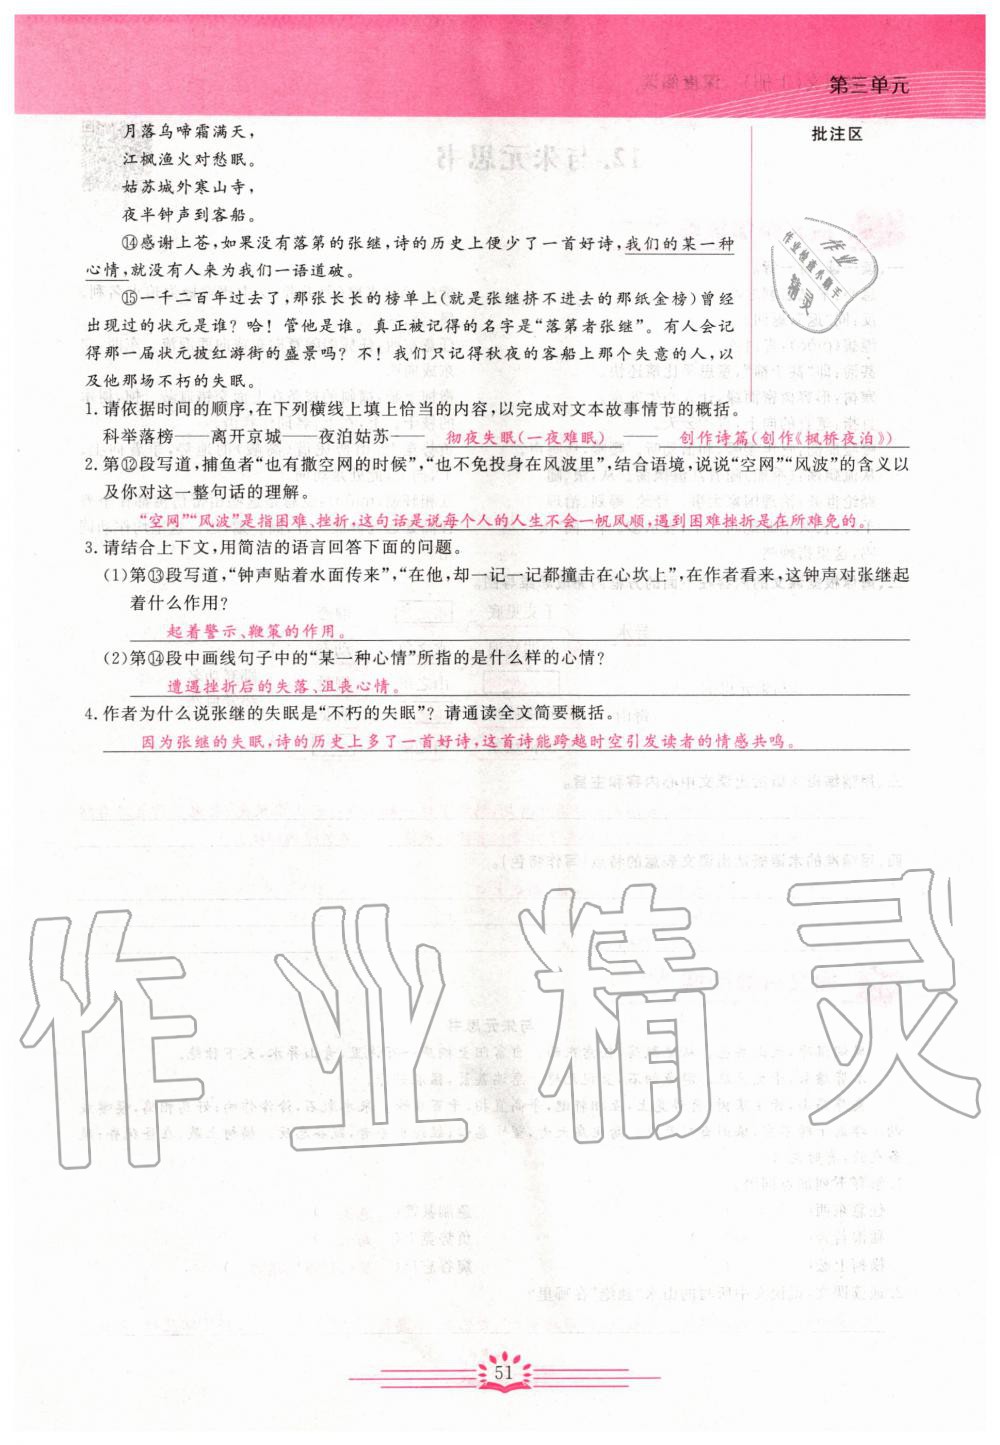 第三单元
批注区
月落乌啼霜满天，
江枫渔火对愁眠。
姑苏城外寒山寺，
夜半钟声到客船。
⑭感谢上苍，如果没有落第的张继，诗的历史上便少了一首好诗，我们的某一种
心情，就没有人来为我们一语道破。
⑮一千二百年过去了，那张长长的榜单上(就是张继挤不进去的那纸金榜)曾经
出现过的状元是谁？哈！管他是谁。真正被记得的名字是“落第者张继”。有人会记
得那一届状元披红游街的盛景吗？不！我们只记得秋夜的客船上那个失意的人，以
及他那场不朽的失眠。
1. 请依据时间的顺序，在下列横线上填上恰当的内容，以完成对文本故事情节的概括。
科举落榜——离开京城——夜泊姑苏—— 彻夜失眠(一夜难眠) —— 创作诗篇(创作《枫桥夜泊》)
2. 第⑫段写道，捕鱼者“也有撒空网的时候”，“也不免投身在风波里”，结合语境，说说“空网”“风波”的含义以
及你对这一整句话的理解。
“空网”“风波”是指困难、挫折，这句话是说每个人的人生不会一帆风顺，遇到困难挫折是在所难免的。
3. 请结合上下文，用简洁的语言回答下面的问题。
(1)第⑬段写道，“钟声贴着水面传来”，“在他，却一记一记都撞击在心坎上”，在作者看来，这钟声对张继起
着什么作用？
起着警示、鞭策的作用。
(2)第⑭段中画线句子中的“某一种心情”所指的是什么样的心情？
遭遇挫折后的失落、沮丧心情。
4. 作者为什么说张继的失眠是“不朽的失眠”？请通读全文简要概括。
因为张继的失眠，诗的历史上多了一首好诗，这首诗能跨越时空引发读者的情感共鸣。
作业
作业检查小助手
精灵
作业精灵
51